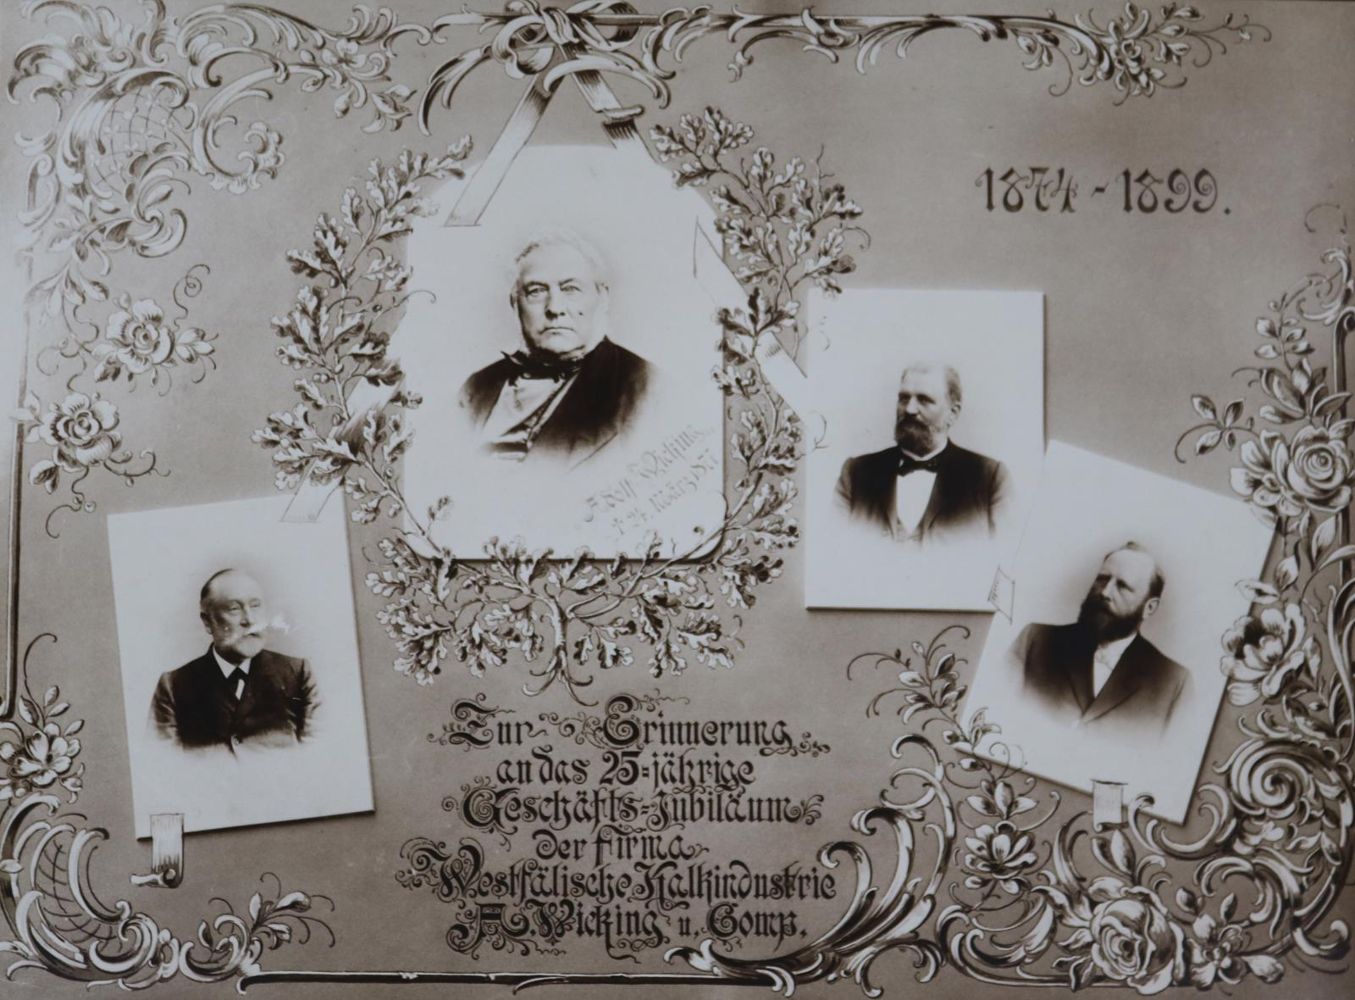 1874 - 1899.
Adolf Wicking
Zur Erinnerung
an das 25=jährige
Geschäfts-Jubiläum
der Firma
Westfälische Kalkindustrie
A. Wicking u. Comp.